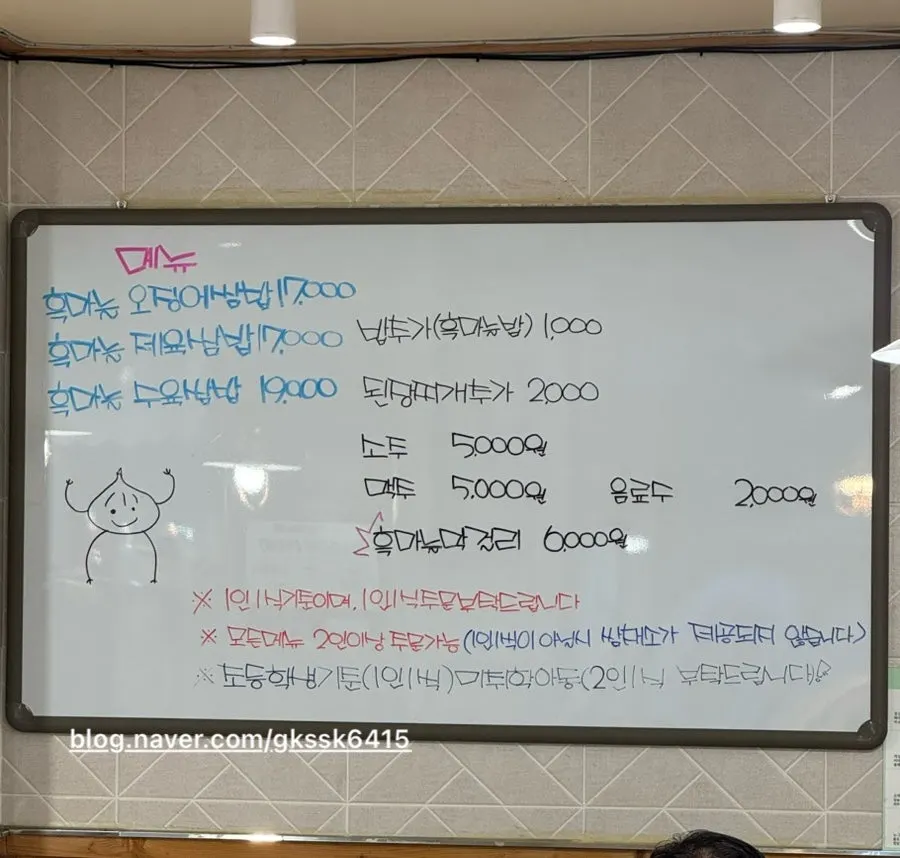 메뉴
흑마늘 오징어쌈밥 17,000
흑마늘 제육쌈밥 17,000
흑마늘 수육쌈밥 19,000
밥추가(흑미뉴밥) 1,000
된장찌개추가 2,000
소주 5,000원
맥주 5,000원 음료수 2,000원
흑마늘막걸리 6,000원
※ 1인1식기준이며, 1인1식주문부탁드립니다
※ 모든메뉴 2인이상 주문가능(1인1식이 아닐시 쌈채소가 제공되지 않습니다)
※초등학생기준(1인1식)미취학아동(2인1식 부탁드립니다)
blog.naver.com/gkssk6415